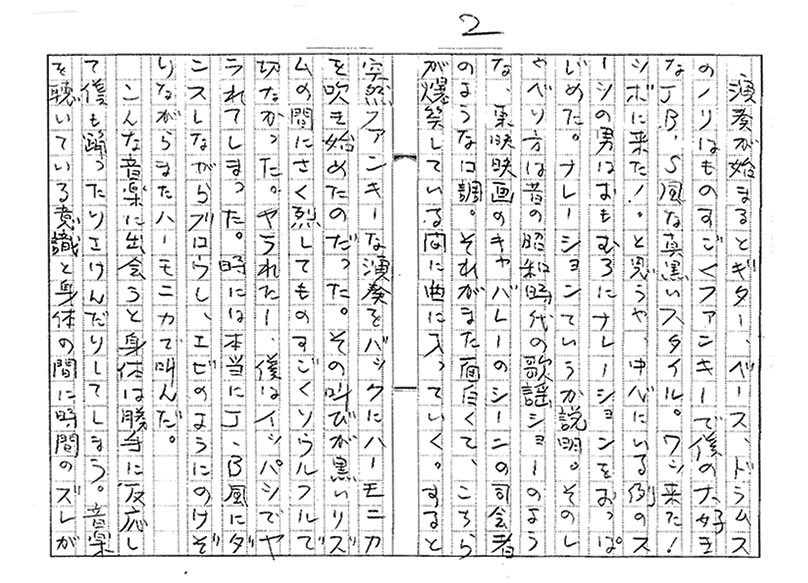 2
演奏が始まるとギター、ベース、ドラムス
のノリはものすごくファンキーで僕の大好き
なJB、S風な真黒いスタイル。ワン来た！
シボに来た！。と思うや、中心にいる例のス
ーシの男はおもむろにナレーションをおっぱ
じめた。ナレーションていうか説明。そのし
ゃべり方は昔の昭和時代の歌謡ショーのよう
な、東映映画のキャバレーのシーンの司会者
のような口調。それがまた面白くて、こちら
が爆笑している間に曲に入っていく。すると
突然ファンキーな演奏をバックにハーモニカ
を吹き始めたのだった。その叫びが黒いリズ
ムの間にさく烈してものすごくソウルフルで
切なかった。ヤラれたー、僕はイッパシでヤ
ラれてしまった。時には本当にJ、B風にダ
ンスしながらブロウし、エビのようにのけぞ
りながらまたハーモニカで叫んだ。
こんな音楽に出会うと身体は勝手に反応し
て僕も踊ったりさけんだりしてしまう。音楽
を聴いている意識と身体の間に時間のズレが